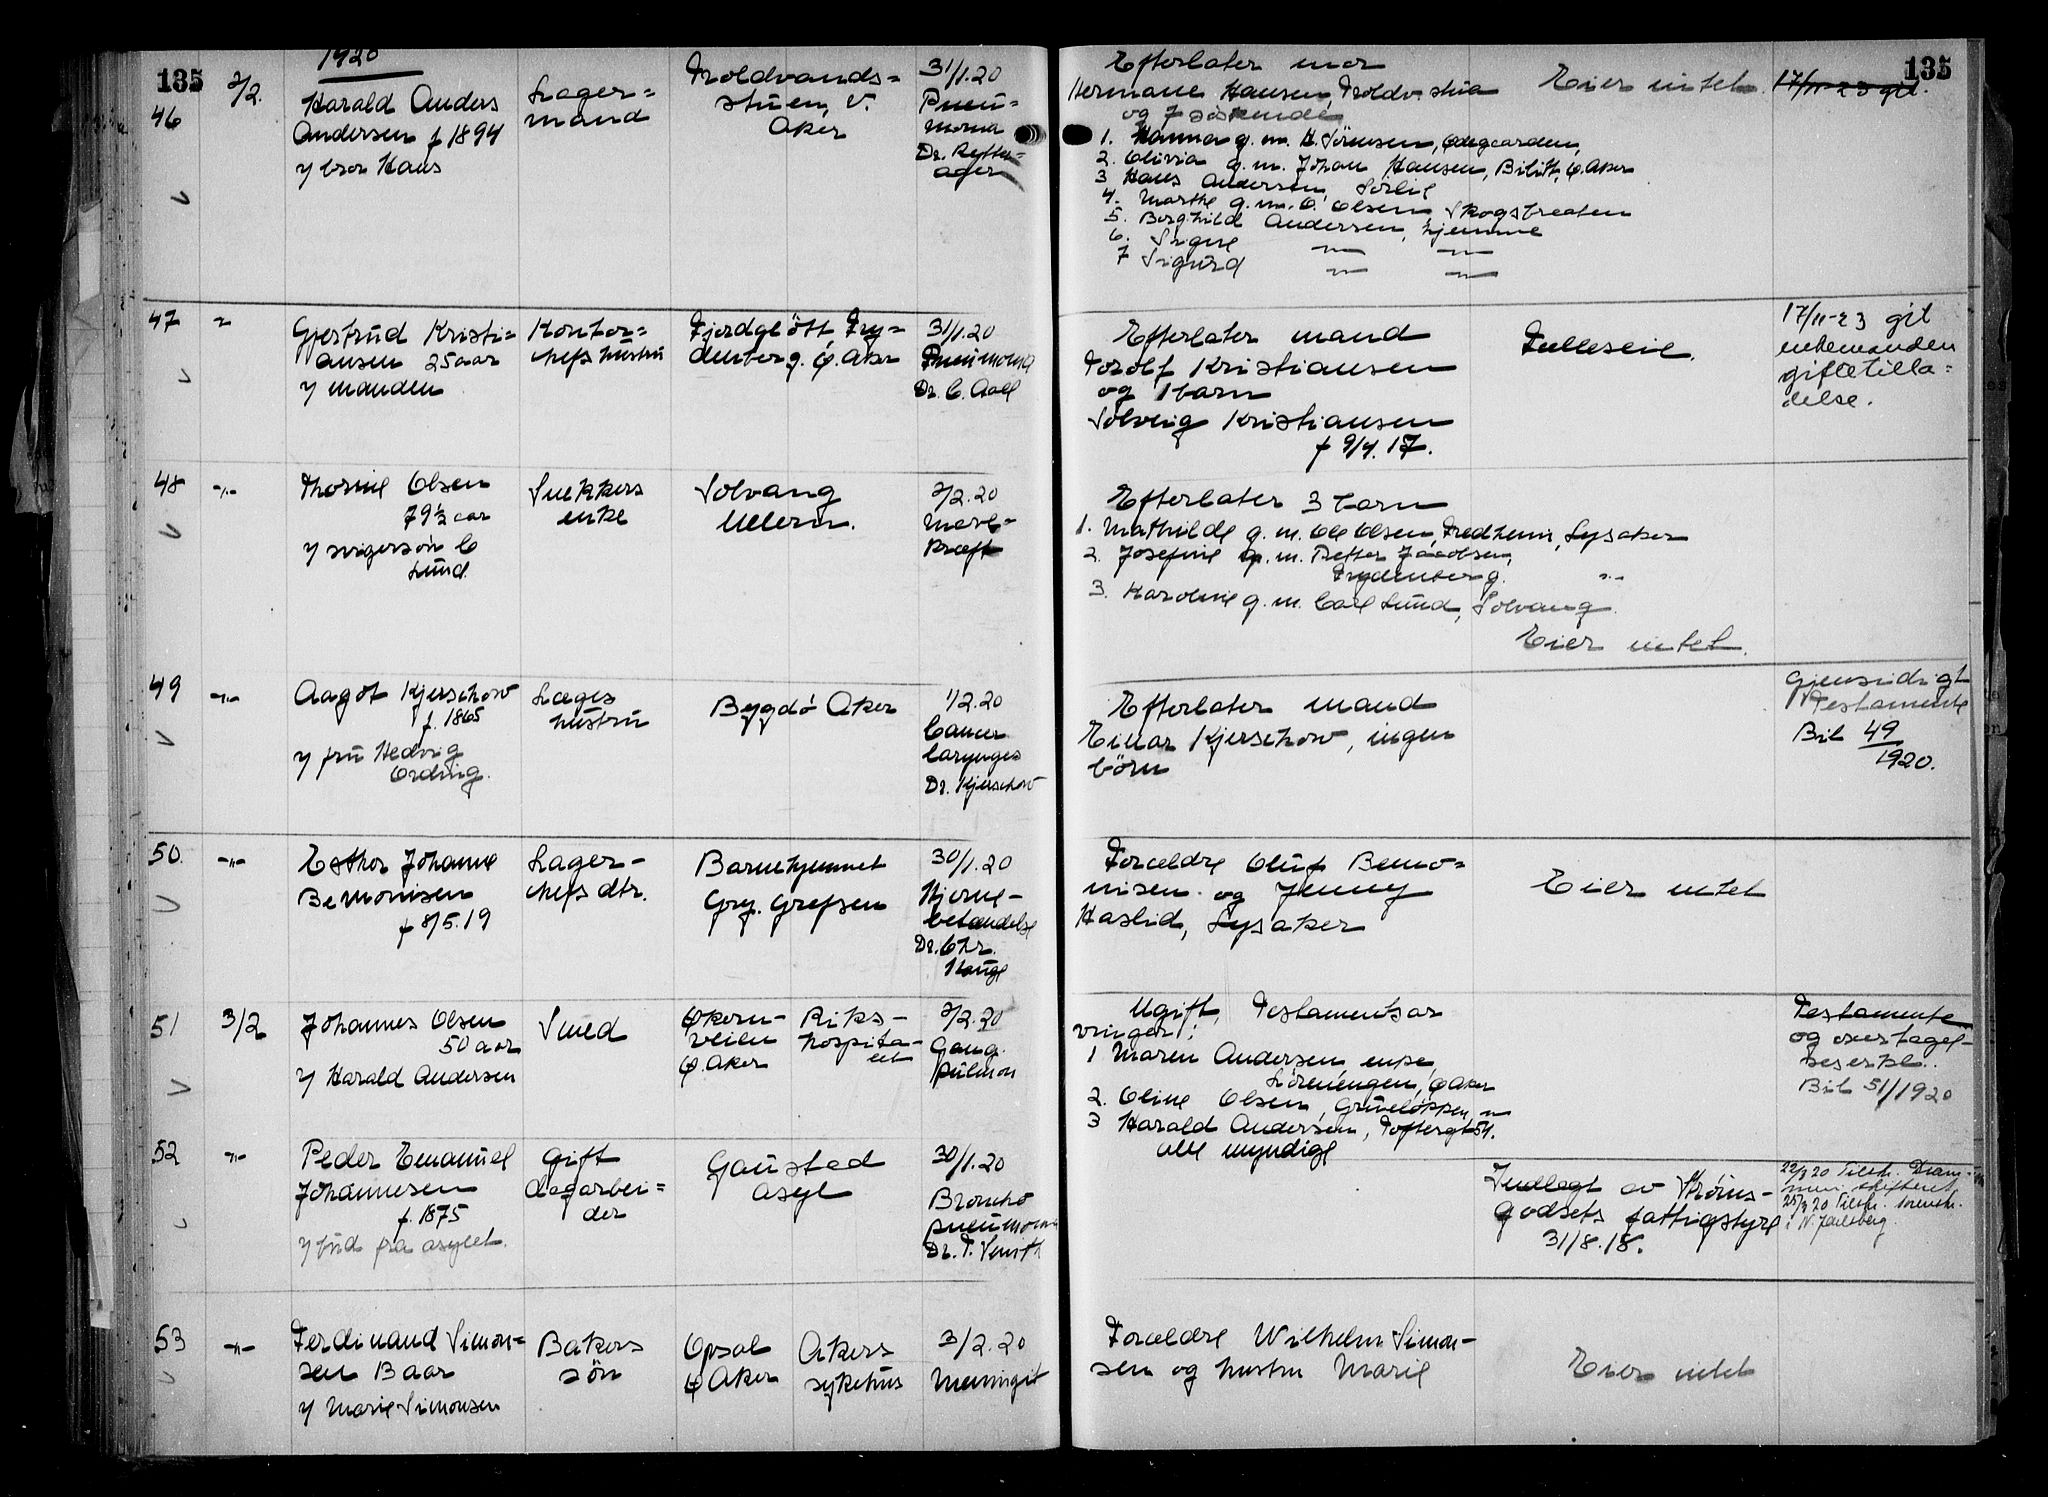 1920
135
46
2/2.
Harald Anders
Andersen f 1894
v bror Hans
Lager=
mand
Troldvands=
stuen, V.
Aker
31/1.20
Pneu=
monia
Dr. Rytter-
ager
Efterlater mor
Hermane Hansen, Troldv. stua
og 7 söskende
1. Hanna g. m. H. Sörensen, Ødegaarden,
2. Olivia g. m. Johan Hansen, Bilitt, Ø. Aker
3 Hans Andersen, Sörlie
4. Marthe g. m. O. Olsen, Skogsbraaten
5. Borghild Andersen, hjemme
6. Signe —"— —"—
7 Sigurd —"— —"—
Eier intet.
17/11-23 git.
135
47
"
Gjertrud Kristi=
ansen 25 aar
v manden
Kontor=
chefs hustru
Fjordglött Fry=
denberg. Ø. Aker
31/1.20
Pneumonia
Dr. C. Aall
Efterlater mand
Torolf Kristiansen
og 1 barn
Solveig Kristiansen
f 9/4. 17.
Fælleseie.
17/11-23 git
enkemanden
giftetilla=
delse.
48
-"-
Thorine Olsen
79½ aar
v svigersön C
Lund.
Snekkers
enke
Solvang
Ullern.
2/2.20
Marv-
kræft
Efterlater 3 barn
1. Mathilde g. m. Ole Olsen, Fredheim, Lysaker
2. Josefine g. m. Petter Jacobsen,
Frydenberg. -"-
3. Karoline g. m. Carl Lund, Solvang.
Eier intet.
49
-"-
Aagot Kjerschow
f. 1865
v fru Hedvig
Ording.
Læges
hustru
Bygdö Aker
1/2.20
Cancer
laryngis
Dr. Kjerschow
Efterlater mand
Einar Kjerschow, ingen
börn
Gjensidigt
Testamente
Bil 49
1920.
50.
-"-
Esther Johanne
Bemonisen
f 8/5.19
Lager-
chefs dtr.
Barnehjemmet
Grg. Grefsen
30/1.20
Hjerne-
betændelse
Dr. Chr.
Hauge
Forældre Oluf Bemo=
nisen og Jenny
Haslid, Lysaker
Eier intet
51
3/2
Johannes Olsen
50 aar
v Harald Andersen
Smed
Økern-
veien
Ø. Aker
Riks-
hospita-
let
2/2.20
Gang.
pulmon
Ugift, Testamentsar
vinger:
1 Maren Andersen, enke,
Lörenengen, Ø Aker
2. Oline Olsen, Grüneløkken, "
3 Harald Andersen, Toftesgt 54.
alle myndige
Testamente
og overtagel-
seserkl.
Bil 51/1920
52
-"-
Peder Emanuel
Johannesen
f. 1875
v bud fra asylet.
Gift
dagarbei=
der
Gaustad
asyl
30/1.20
Broncho
pneumonia
Dr. T. Smith
Indlagt av Ströms-
godsets fattigstyre
31/8.18.
22/3 20 Tilskr. Dram-
men skifteret
25/3 20 Tilskr. sorenskr.
i N. Jarlsberg.
53
-"-
Ferdinand Simon=
sen 13 aar
v Marie Simonsen
Bakers
sön
Opsal
Ø Aker
Akers
sykehus
3/2.20
Meningit
Forældre Wilhelm Simon-
sen og hustru Marie
Eier intet